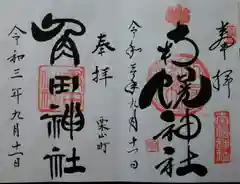 奉拝
南幌神社
令和三年九月十一日
奉拝
栗山町
角田神社
令和三年九月十一日